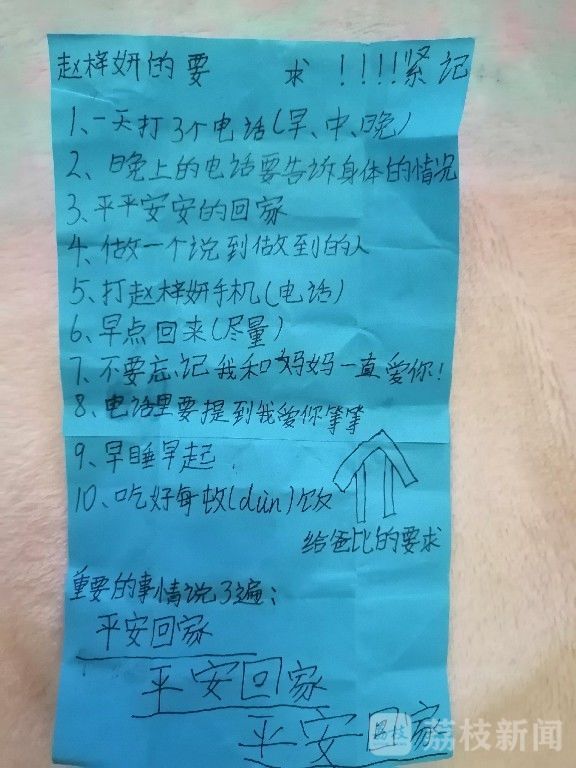 赵梓妍的要 求!!!!紧记
1、一天打3个电话(早、中、晚)
2、晚上的电话要告诉身体的情况
3、平平安安的回家
4、做一个说到做到的人
5、打赵梓妍手机(电话)
6、早点回来(尽量)
7、不要忘记我和妈妈一直爱你!
8、电话里要提到我爱你等等
9、早睡早起.
10、吃好每顿(dùn)饭
给爸比的要求
重要的事情说3遍:
平安回家
平安回家
平安回家
荔枝新闻